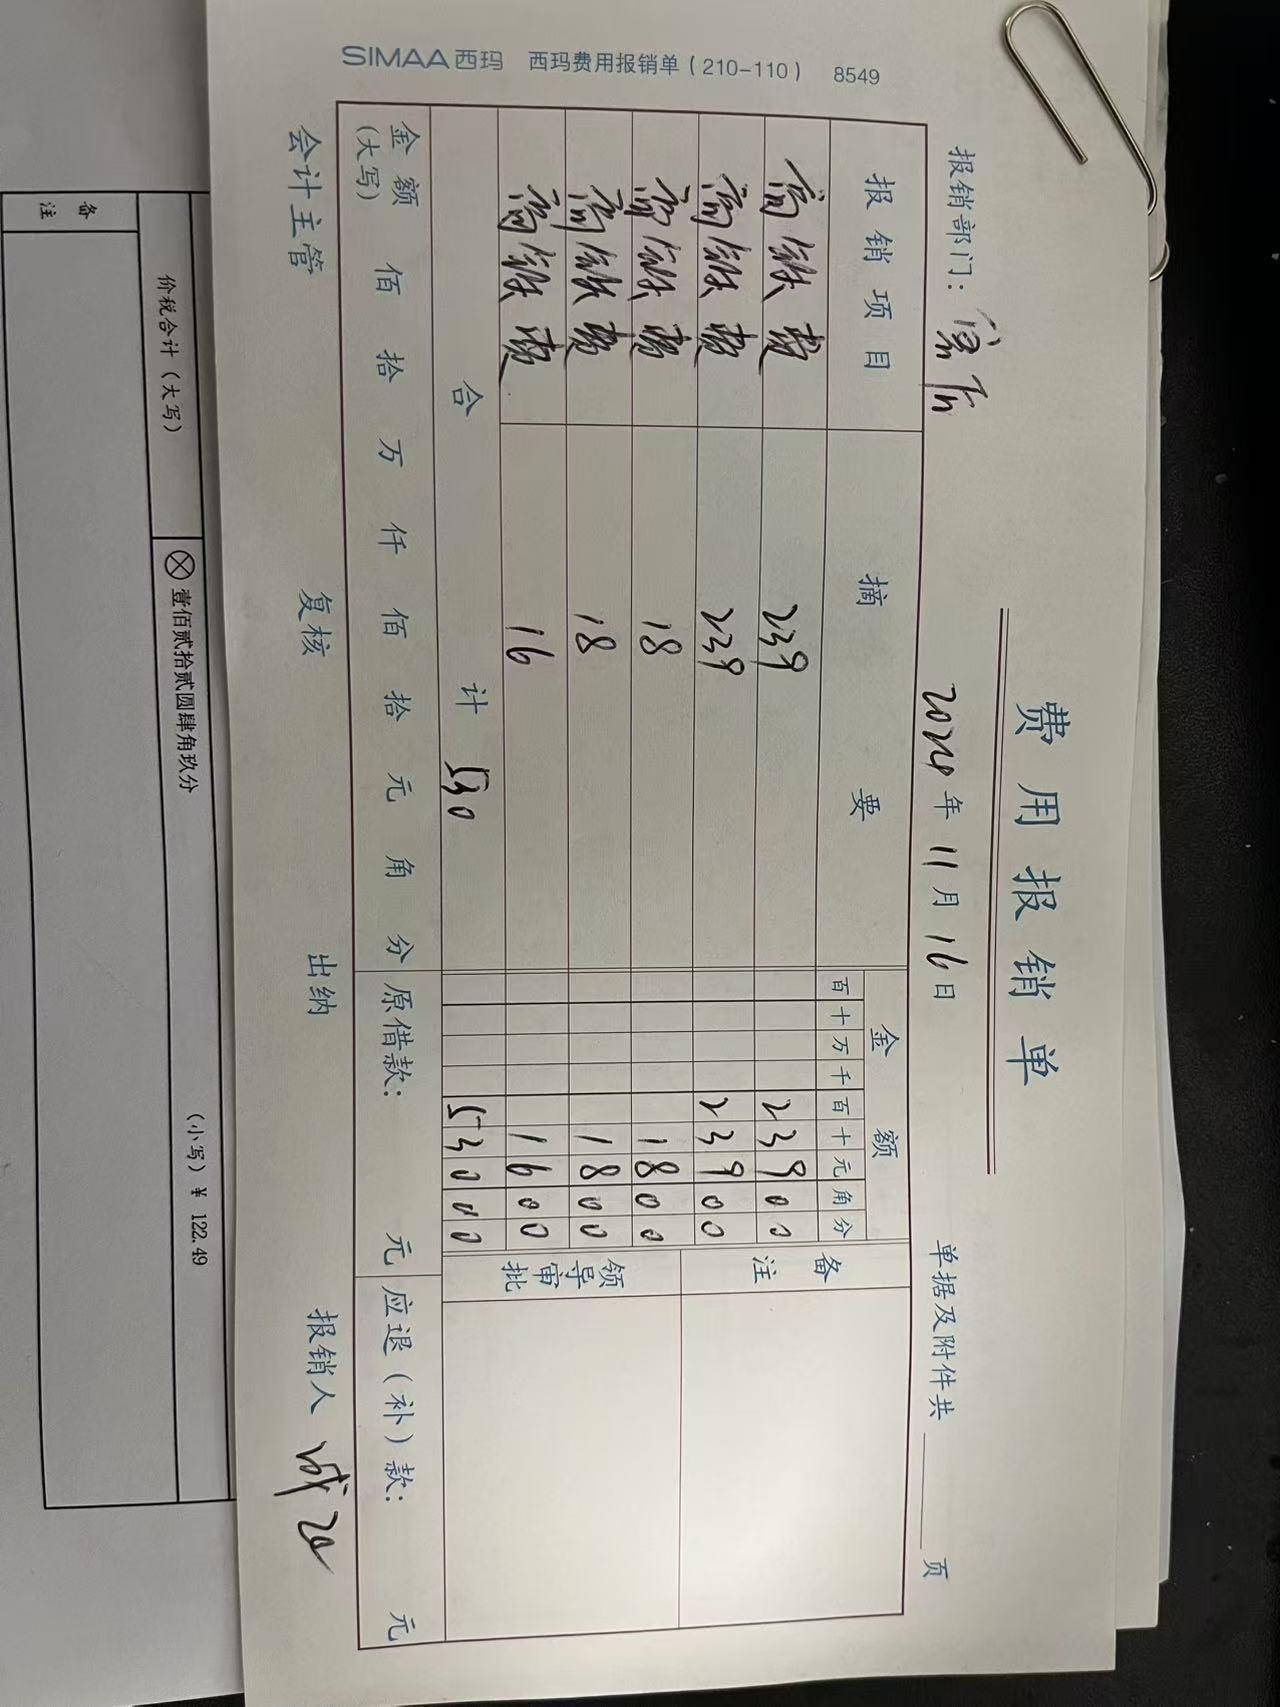 费用报销单
报销部门：
2024年11月16日
单据及附件共 页
报销项目 摘要 金额 备注
百十万千百十元角分
高铁费 239 23900
高铁费 239 23900
高铁费 18 1800
高铁费 18 1800
高铁费 16 1600
领导审批
合计 530 53000
金额(大写) 佰 拾 万 仟 佰 拾 元 角 分 原借款： 元 应退(补)款： 元
会计主管 复核 出纳 报销人
SIMAA西玛 西玛费用报销单(210-110) 8549
价税合计（大写） ⊗壹佰贰拾贰圆肆角玖分 （小写）¥ 122.49
备注